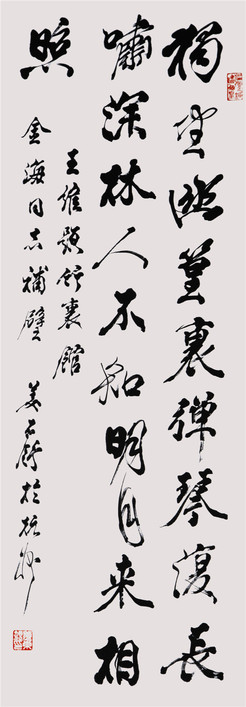 獨坐幽篁裏彈琴復長
嘯深林人不知明月來相
照
王維題竹裏館
金海同志補壁 姜東舒於杭州